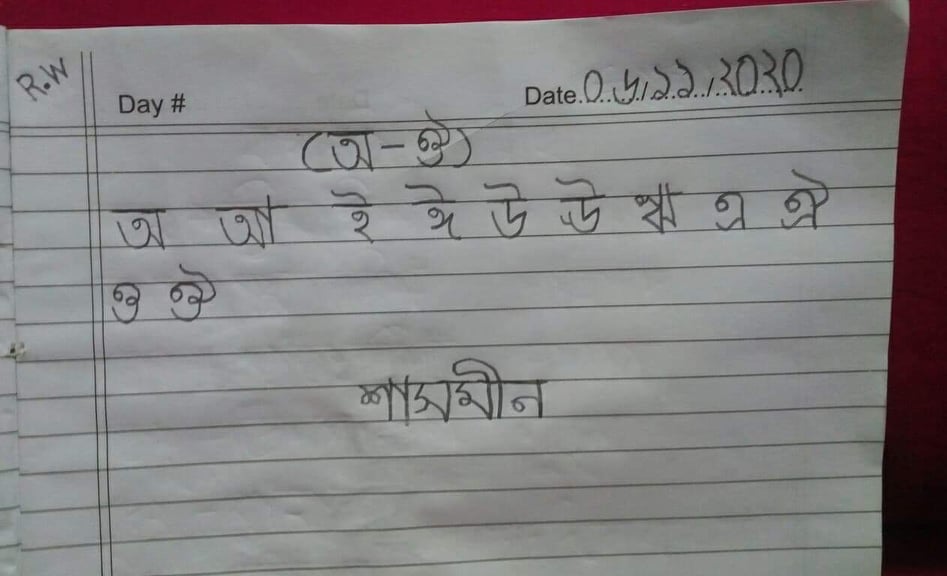 R.W
Day #
Date. ০৫/১১/২০২০
(অ-ঔ)
অ আ ই ঈ উ ঊ ঋ এ ঐ
ও ঔ